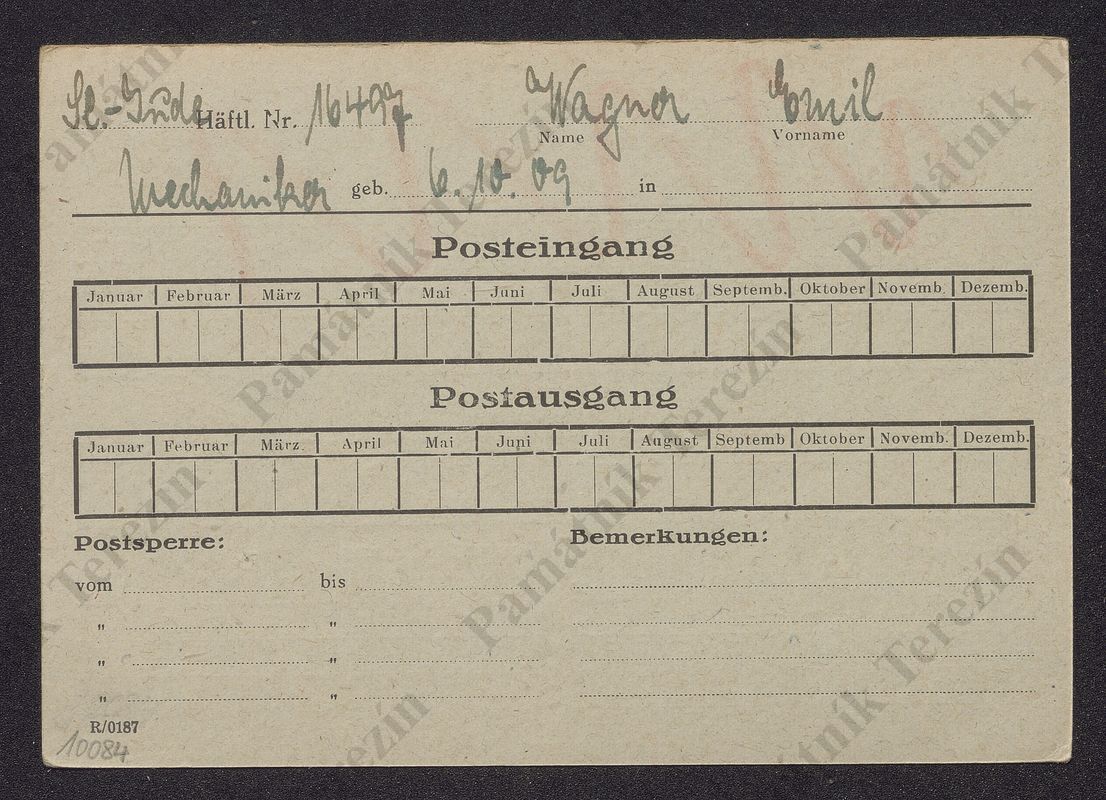 Sl.-Jude Häftl. Nr. 16497 Wagner Emil
Name Vorname
Mechaniker geb. 6.10.09 in
Posteingang
Januar Februar März April Mai Juni Juli August Septemb. Oktober Novemb. Dezemb.
Postausgang
Januar Februar März. April Mai Juni Juli August Septemb Oktober Novemb. Dezemb.
Postsperre: Bemerkungen:
vom bis
" "
" "
" "
R/0187
10084
Památník Terezín